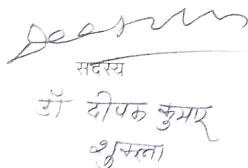 सदस्य
डॉ दीपक कुमार
शुक्ला